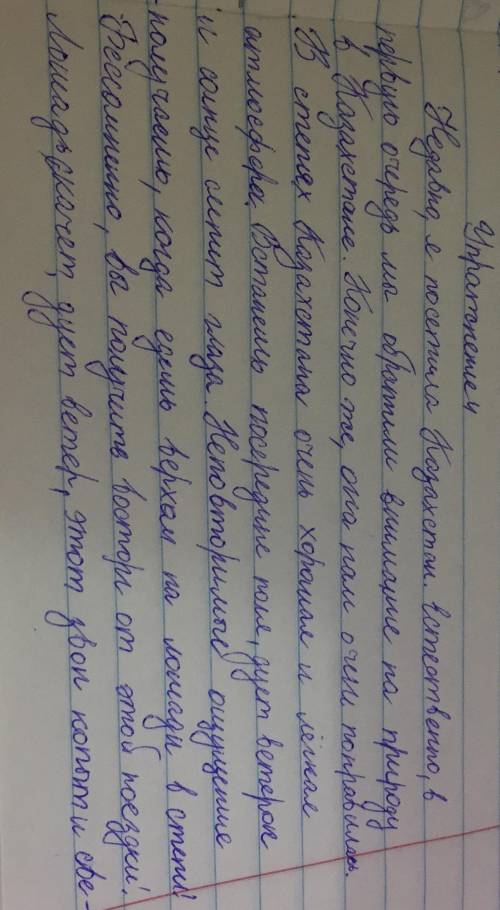 Упражнение 4
Недавно, я посетила Казахстан. Естественно, в
первую очередь мы обратили внимание на природу
в Казахстане. Конечно же, она нам очень понравилась.
В степях Казахстана очень хорошая и лёгкая
атмосфера. Встанешь посередине поля, дует ветерок
и солнце слепит глаза. Неповторимые ощущение
получаешь, когда едешь верхом на лошади в степи!
Несомненно, вы получить восторг от этой поездки!
Лошадь скачет, дует ветер, этот звон копыт и све-